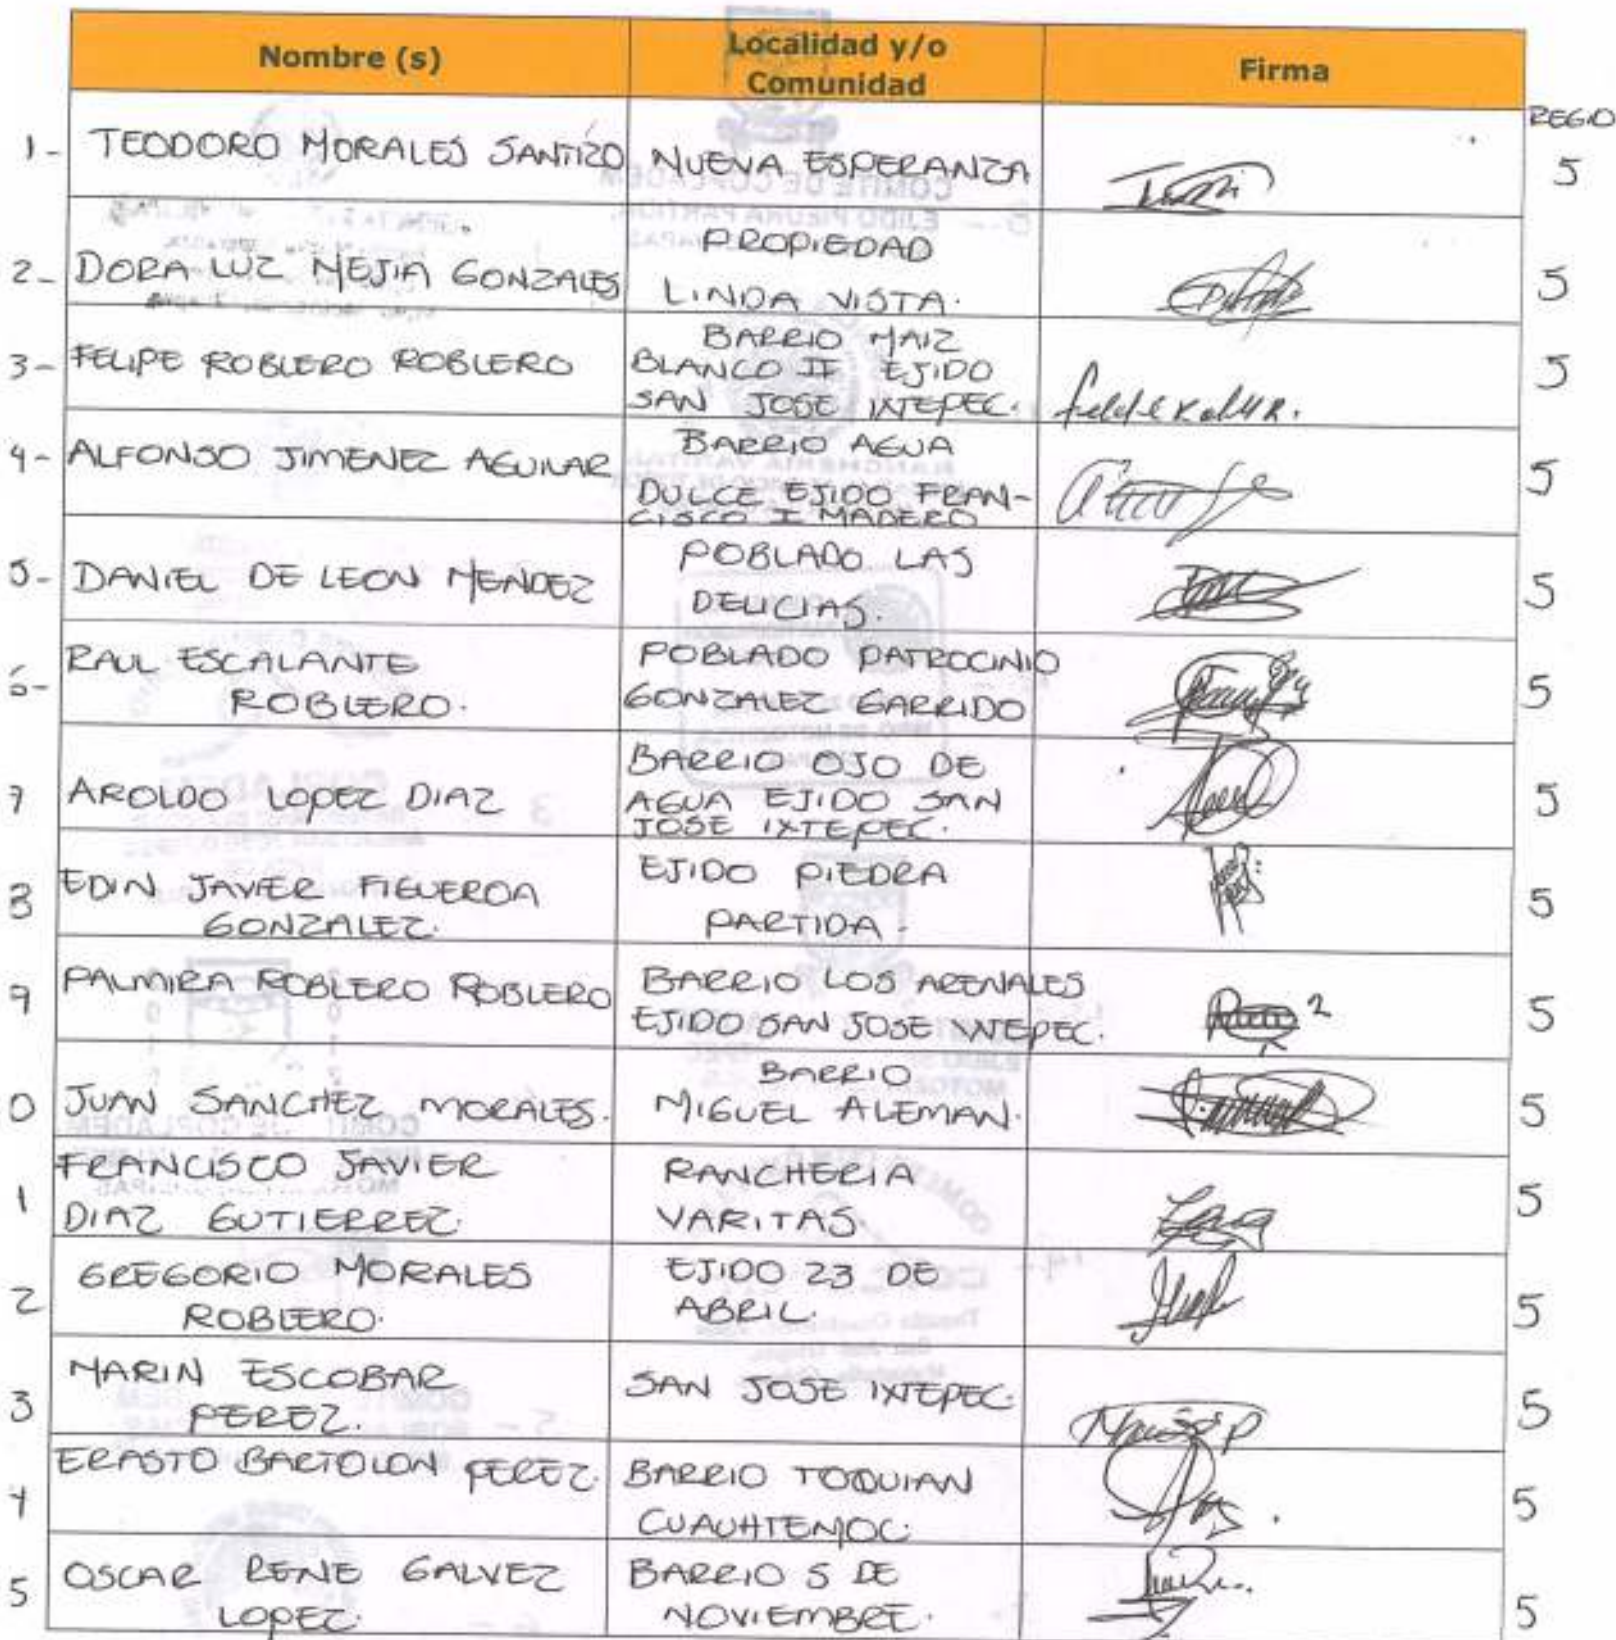 Nombre (s)
Localidad y/o
Comunidad
Firma
REGIO
1- TEODORO MORALES SANTIZO NUEVA ESPERANZA 5
2- DORA LUZ MEJIA GONZALES
PROPIEDAD
LINDA VISTA.
5
3- FELIPE ROBLERO ROBLERO
BARRIO MAIZ
BLANCO II EJIDO
SAN JOSE IXTEPEC.
5
4- ALFONSO JIMENEZ AGUILAR
BARRIO AGUA
DULCE EJIDO FRAN-
CISCO I MADERO
5
5- DANIEL DE LEON MENDEZ
POBLADO LAS
DELICIAS.
5
6- RAUL ESCALANTE
ROBLERO.
POBLADO PATROCINIO
GONZALEZ GARRIDO
5
7 AROLDO LOPEZ DIAZ
BARRIO OJO DE
AGUA EJIDO SAN
JOSE IXTEPEC.
5
8 EDIN JAVIER FIGUEROA
GONZALEZ.
EJIDO PIEDRA
PARTIDA.
5
9 PALMIRA ROBLERO ROBLERO
BARRIO LOS ARENALES
EJIDO SAN JOSE IXTEPEC.
5
0 JUAN SANCHEZ MORALES.
BARRIO
MIGUEL ALEMAN.
5
1 FRANCISCO JAVIER
DIAZ GUTIERREZ.
RANCHERIA
VARITAS.
5
2 GREGORIO MORALES
ROBLERO.
EJIDO 23 DE
ABRIL.
5
3 MARIN ESCOBAR
PEREZ.
SAN JOSE IXTEPEC.
5
4 ERASTO BARTOLON PEREZ.
BARRIO TOQUIAN
CUAUHTEMOC.
5
5 OSCAR RENE GALVEZ
LOPEZ.
BARRIO 5 DE
NOVIEMBRE.
5